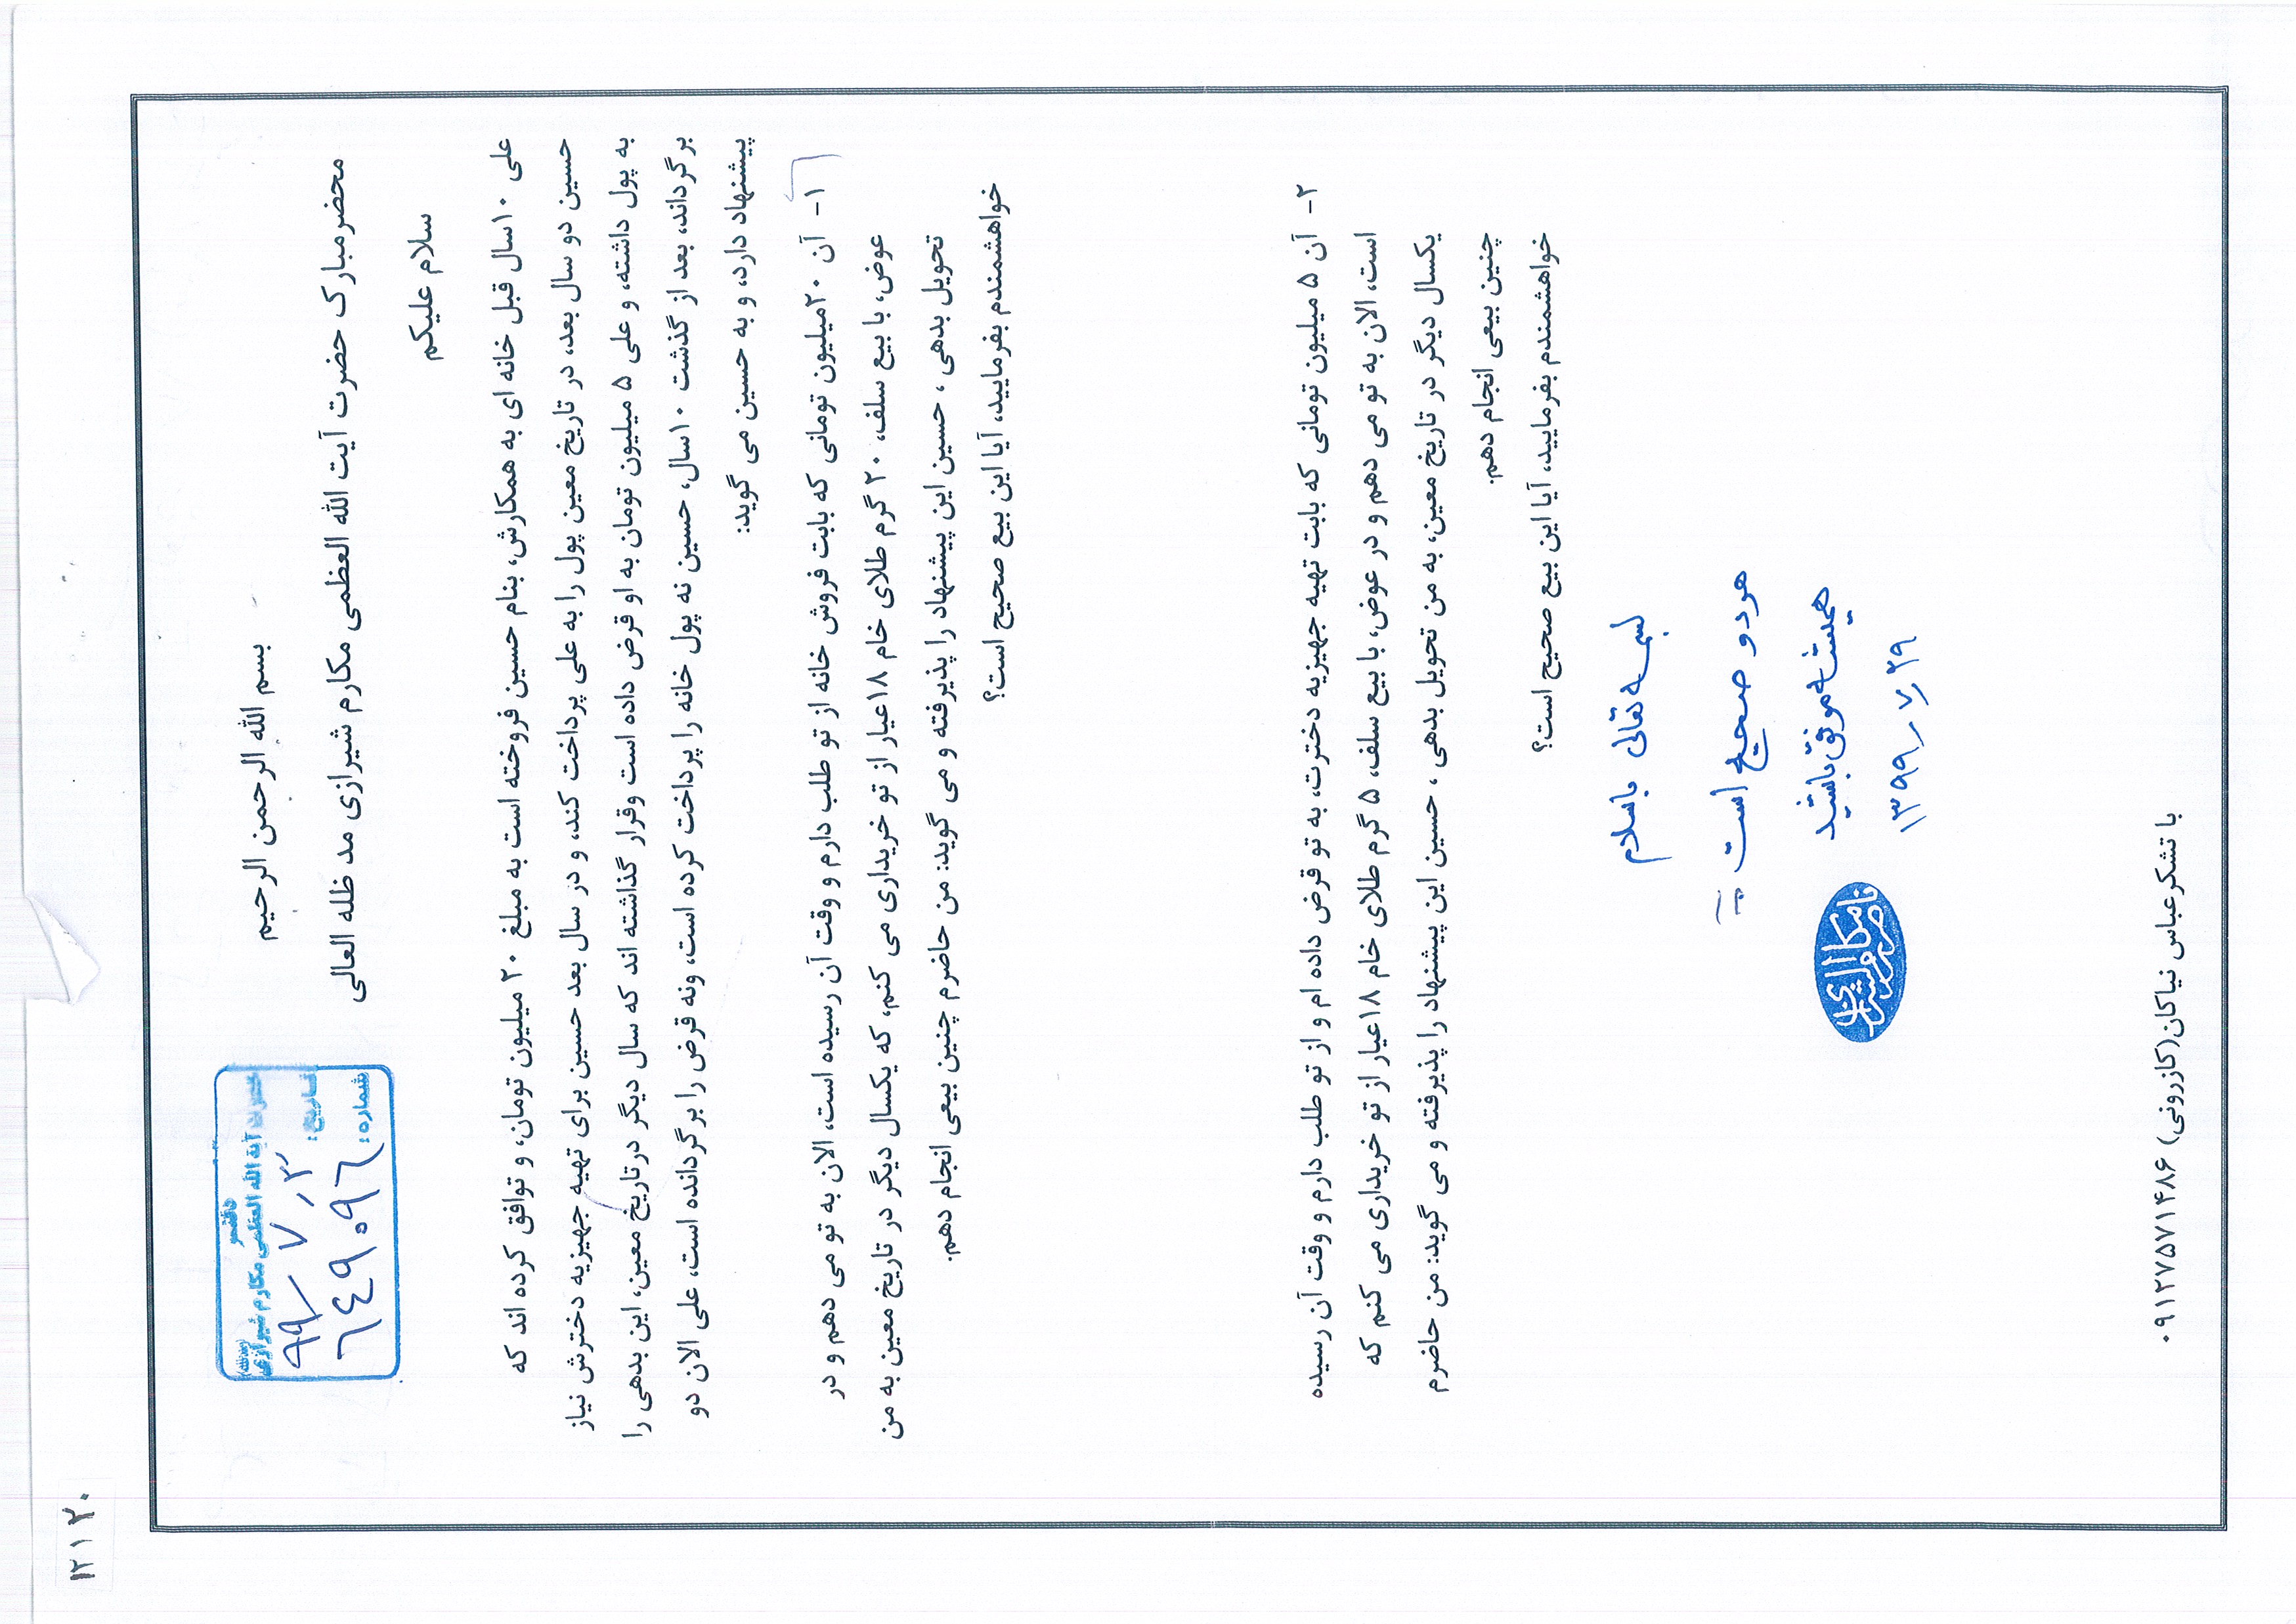 ۱۲۱۲۰
دفتر
حضرت آیة الله العظمی مکارم شیرازی
تاریخ: ۹۹/۷/۳
شماره: ٦٤٩٠٩٦
بسم الله الرحمن الرحیم
محضرمبارک حضرت آیت الله العظمی مکارم شیرازی مد ظله العالی
سلام علیکم
علی ۱۰سال قبل خانه ای به همکارش، بنام حسین فروخته است به مبلغ ۲۰ میلیون تومان، و توافق کرده اند که
حسین دو سال بعد، در تاریخ معین پول را به علی پرداخت کند، و در سال بعد حسین برای تهیه جهیزیه دخترش نیاز
به پول داشته، و علی ۵ میلیون تومان به او قرض داده است وقرار گذاشته اند که سال دیگر درتاریخ معین، این بدهی را
برگرداند، بعد از گذشت ۱۰سال، حسین نه پول خانه را پرداخت کرده است، ونه قرض را برگردانده است، علی الان دو
پیشنهاد دارد، و به حسین می گوید:
۱- آن ۲۰میلیون تومانی که بابت فروش خانه از تو طلب دارم و وقت آن رسیده است، الان به تو می دهم و در
عوض، با بیع سلف، ۲۰ گرم طلای خام ۱۸عیار از تو خریداری می کنم، که یکسال دیگر در تاریخ معین به من
تحویل بدهی ، حسین این پیشنهاد را پذیرفته و می گوید: من حاضرم چنین بیعی انجام دهم.
خواهشمندم بفرمایید، آیا این بیع صحیح است؟
۲- آن ۵ میلیون تومانی که بابت تهیه جهیزیه دخترت، به تو قرض داده ام و از تو طلب دارم و وقت آن رسیده
است، الان به تو می دهم و در عوض، با بیع سلف، ۵ گرم طلای خام ۱۸عیار از تو خریداری می کنم که
یکسال دیگر در تاریخ معین، به من تحویل بدهی ، حسین این پیشنهاد را پذیرفته و می گوید: من حاضرم
چنین بیعی انجام دهم.
خواهشمندم بفرمایید، آیا این بیع صحیح است؟
بسمه تعالی باسلام
هردو صحیح است
همیشه موفق باشید
۱۳۹۹/۷/۲۹
ناصر مکارم الشیرازی
با تشکرعباس نیاکان(کازرونی) ۰۹۱۲۷۵۷۱۴۸۶